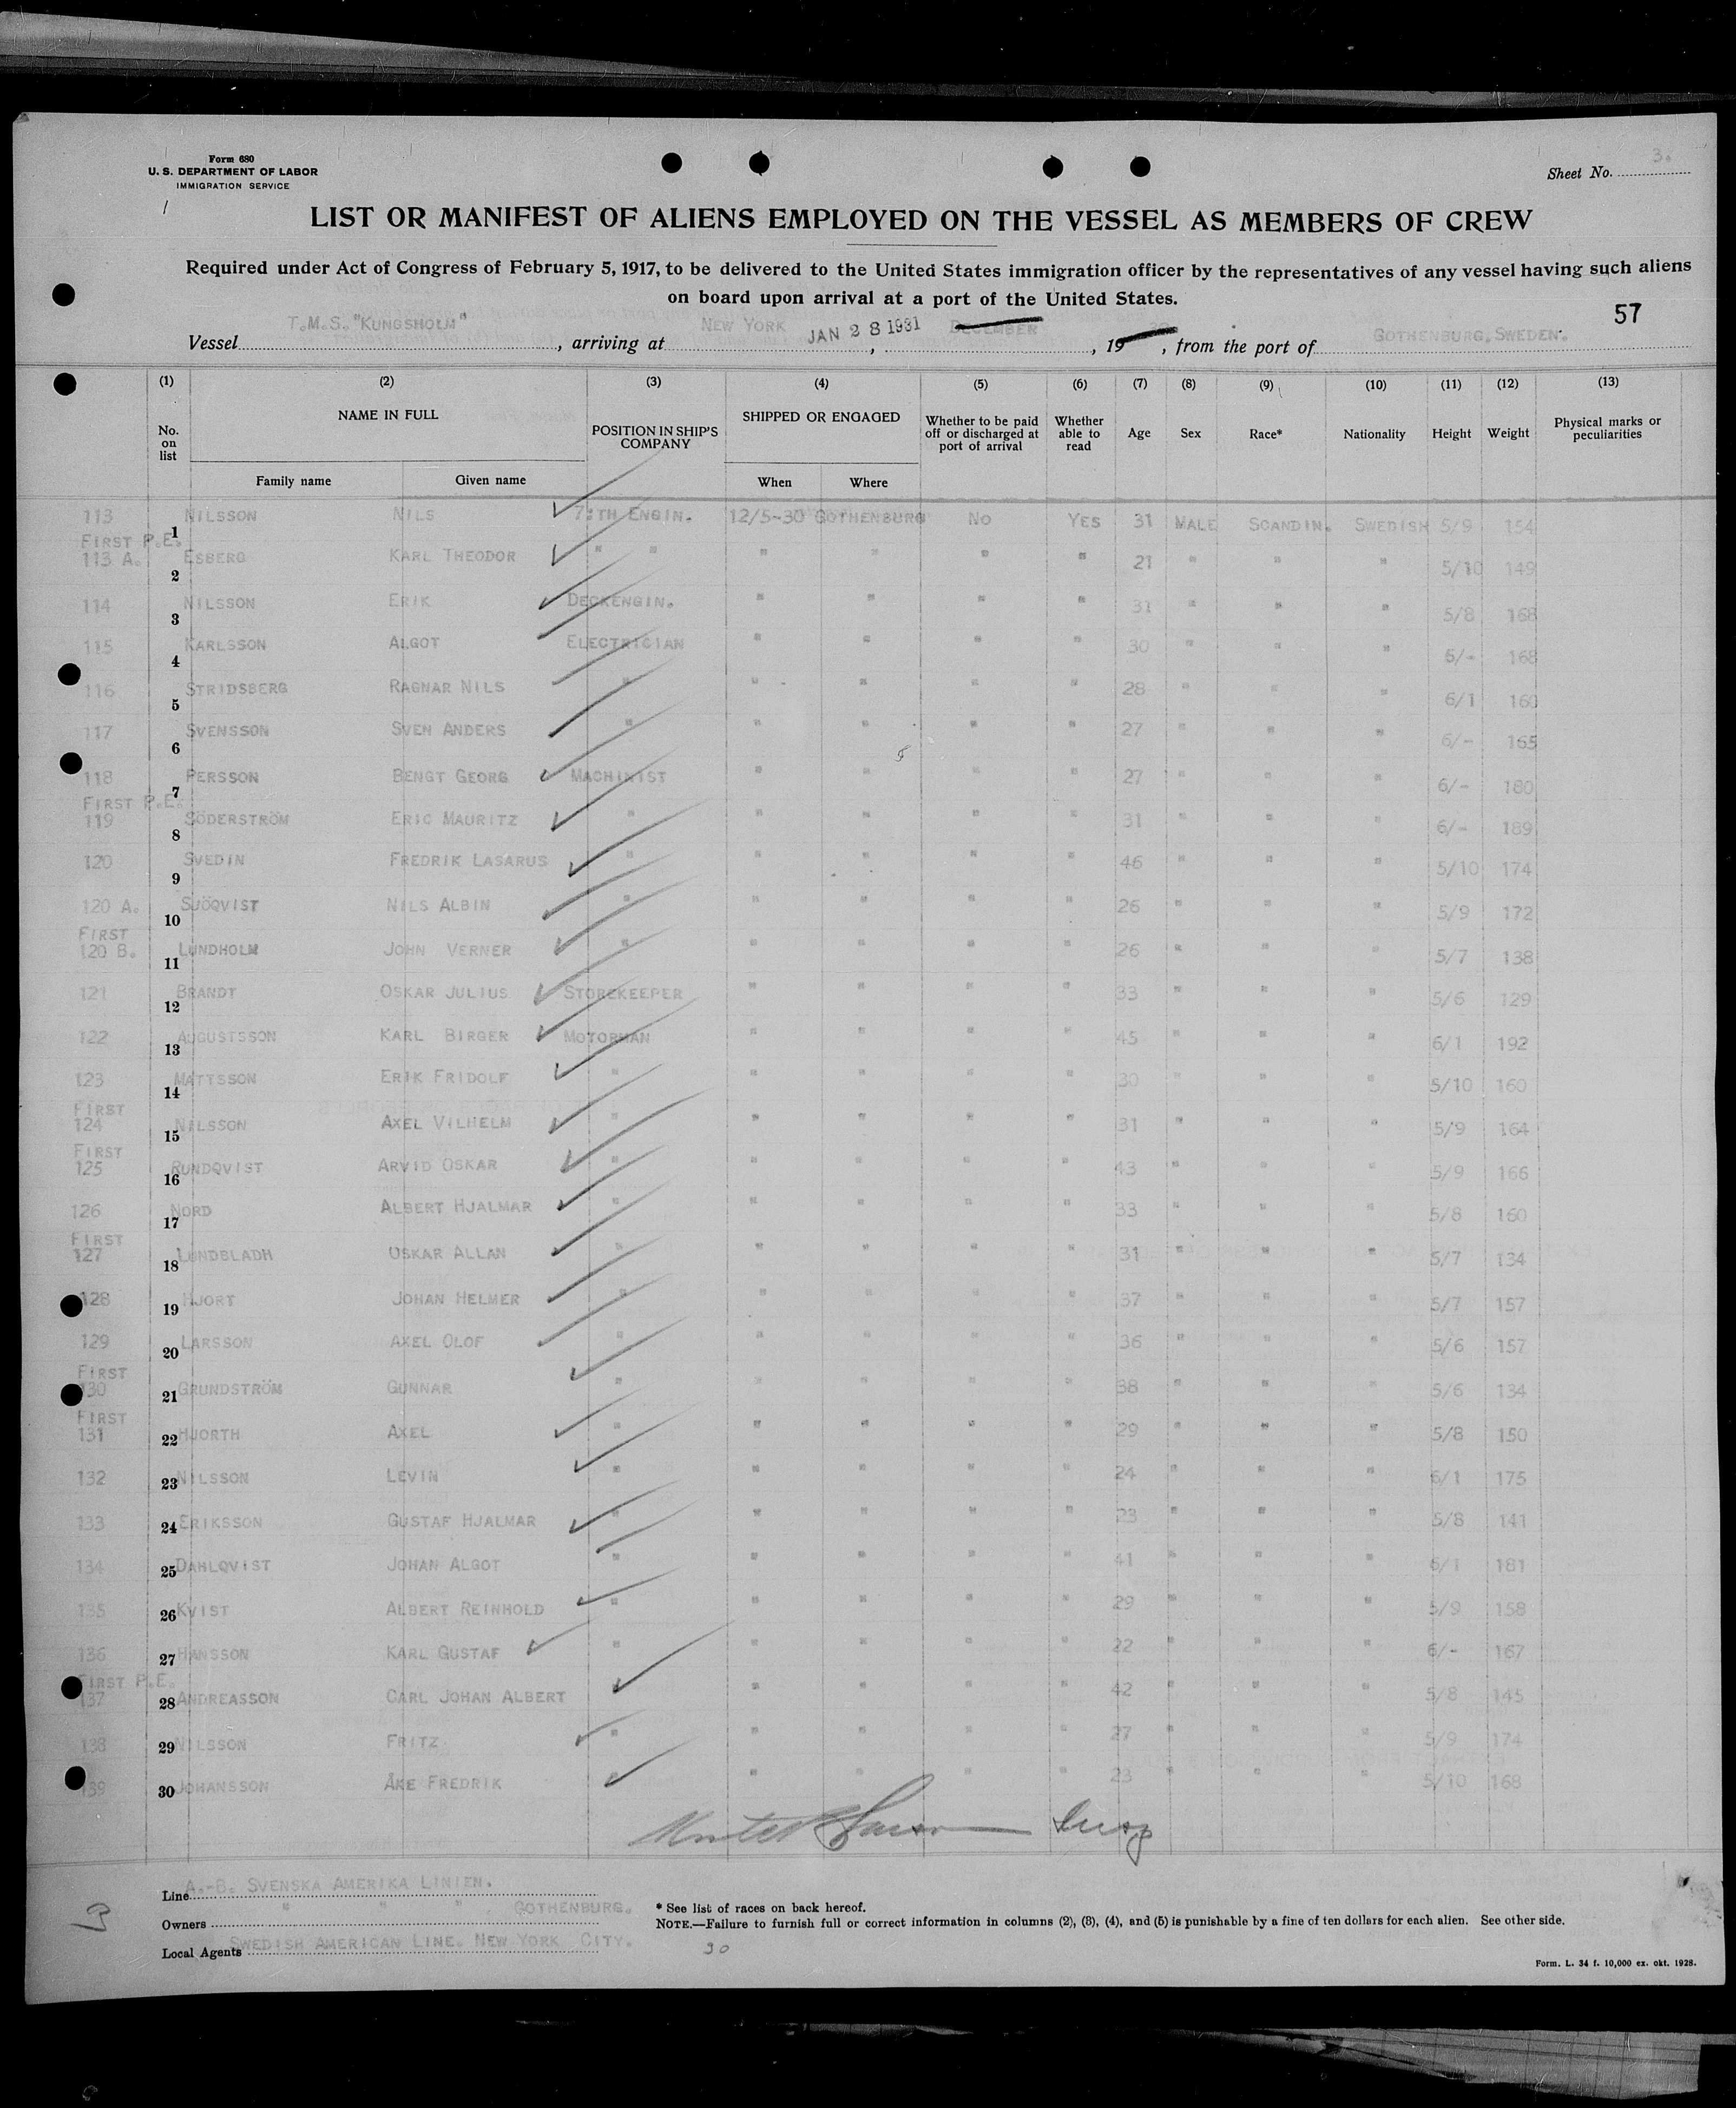 Form 680
U. S. DEPARTMENT OF LABOR
IMMIGRATION SERVICE
Sheet No. 3.
LIST OR MANIFEST OF ALIENS EMPLOYED ON THE VESSEL AS MEMBERS OF CREW
Required under Act of Congress of February 5, 1917, to be delivered to the United States immigration officer by the representatives of any vessel having such aliens
on board upon arrival at a port of the United States.
57
Vessel T.M.S. "KUNGSHOLM", arriving at NEW YORK JAN 28 1931, DECEMBER, 19, from the port of GOTHENBURG, SWEDEN.
(1) (2) (3) (4) (5) (6) (7) (8) (9) (10) (11) (12) (13)
No. on list NAME IN FULL POSITION IN SHIP'S COMPANY SHIPPED OR ENGAGED Whether to be paid off or discharged at port of arrival Whether able to read Age Sex Race* Nationality Height Weight Physical marks or peculiarities
Family name Given name When Where
113 1 NILSSON NILS 7:TH ENGIN. 12/5-30 GOTHENBURG NO YES 31 MALE SCANDIN. SWEDISH 5/9 154
FIRST P.E.
113 A. 2 ESBERG KARL THEODOR " " " " " " 21 " " " 5/10 149
114 3 NILSSON ERIK DECKENGIN. " " " " 31 " " " 5/8 168
115 4 KARLSSON ALGOT ELECTRICIAN " " " " 30 " " " 6/- 168
116 5 STRIDSBERG RAGNAR NILS " " " " " 28 " " " 6/1 160
117 6 SVENSSON SVEN ANDERS " " " " " 27 " " " 6/- 165
118 7 PERSSON BENGT GEORG MACHINIST " " " " 27 " " " 6/- 180
FIRST P.E.
119 8 SÖDERSTRÖM ERIC MAURITZ " " " " " 31 " " " 6/- 189
120 9 SVEDIN FREDRIK LASARUS " " " " " 46 " " " 5/10 174
120 A. 10 SJÖQVIST NILS ALBIN " " " " " 26 " " " 5/9 172
FIRST
120 B. 11 LUNDHOLM JOHN VERNER " " " " " 26 " " " 5/7 138
121 12 BRANDT OSKAR JULIUS STOREKEEPER " " " " 33 " " " 5/6 129
122 13 AUGUSTSSON KARL BIRGER MOTORMAN " " " " 45 " " " 6/1 192
123 14 MATTSSON ERIK FRIDOLF " " " " " 30 " " " 5/10 160
FIRST
124 15 NILSSON AXEL VILHELM " " " " " 31 " " " 5/9 164
FIRST
125 16 RUNDQVIST ARVID OSKAR " " " " " 43 " " " 5/9 166
126 17 NORD ALBERT HJALMAR " " " " " 33 " " " 5/8 160
FIRST
127 18 LUNDBLADH OSKAR ALLAN " " " " " 31 " " " 5/7 134
128 19 HJORT JOHAN HELMER " " " " " 37 " " " 5/7 157
129 20 LARSSON AXEL OLOF " " " " " 36 " " " 5/6 157
FIRST
130 21 GRUNDSTRÖM GUNNAR " " " " " 38 " " " 5/6 134
FIRST
131 22 HJORTH AXEL " " " " " 29 " " " 5/8 150
132 23 NILSSON LEVIN " " " " " 24 " " " 6/1 175
133 24 ERIKSSON GUSTAF HJALMAR " " " " " 23 " " " 5/8 141
134 25 DAHLQVIST JOHAN ALGOT " " " " " 41 " " " 6/1 181
135 26 KVIST ALBERT REINHOLD " " " " " 29 " " " 5/9 158
136 27 HANSSON KARL GUSTAF " " " " " 22 " " " 6/- 167
FIRST P.E.
137 28 ANDREASSON CARL JOHAN ALBERT " " " " " 42 " " " 5/8 145
138 29 NILSSON FRITZ " " " " " 27 " " " 5/9 174
139 30 JOHANSSON ÅKE FREDRIK " " " " " 23 " " " 5/10 168
Insp
Line A.-B. SVENSKA AMERIKA LINIEN.
Owners " " " , GOTHENBURG.
Local Agents SWEDISH AMERICAN LINE. NEW YORK CITY.
* See list of races on back hereof.
NOTE.—Failure to furnish full or correct information in columns (2), (3), (4), and (5) is punishable by a fine of ten dollars for each alien. See other side.
30
Form. L. 34 f. 10,000 ex. okt. 1928.